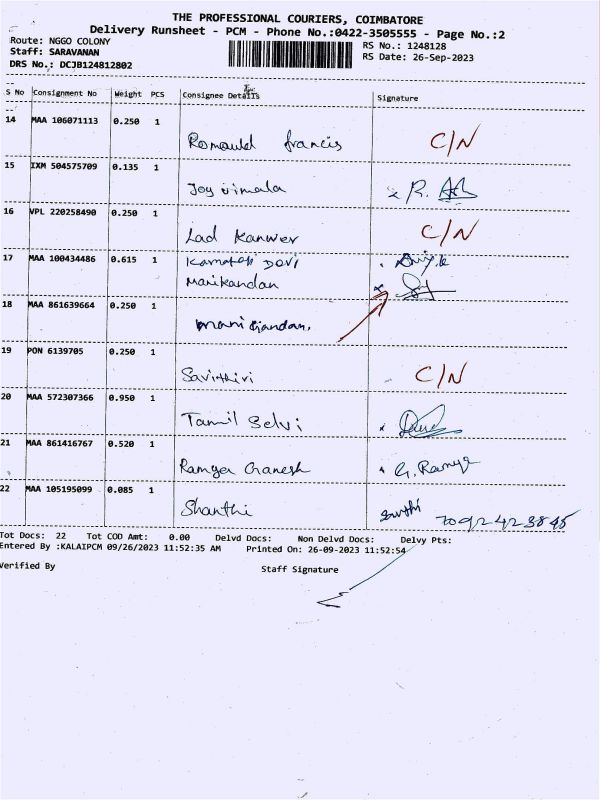 THE PROFESSIONAL COURIERS, COIMBATORE
Delivery Runsheet - PCM - Phone No.:0422-3505555 - Page No.:2
Route: NGGO COLONY RS No.: 1248128
Staff: SARAVANAN RS Date: 26-Sep-2023
DRS No.: DCJB124812802
S No Consignment No Weight PCS Consignee Details Signature
14 MAA 106071113 0.250 1
Romauld francis C/N
15 IXM 504575709 0.135 1
Joy vimala x R.
16 VPL 220258490 0.250 1
Lad Kanwer C/N
17 MAA 100434486 0.615 1 Devi
Manikandan
18 MAA 861639664 0.250 1
manikandan.
19 PON 6139705 0.250 1
Savithiri C/N
20 MAA 572307366 0.950 1
Tamil Selvi
21 MAA 861416767 0.520 1
Ramya Ganesh G. Ramya
22 MAA 105195099 0.085 1
Shanthi 7092423845
Tot Docs: 22 Tot COD Amt: 0.00 Delvd Docs: Non Delvd Docs: Delvy Pts:
Entered By :KALAIPCM 09/26/2023 11:52:35 AM Printed On: 26-09-2023 11:52:54
Verified By Staff Signature